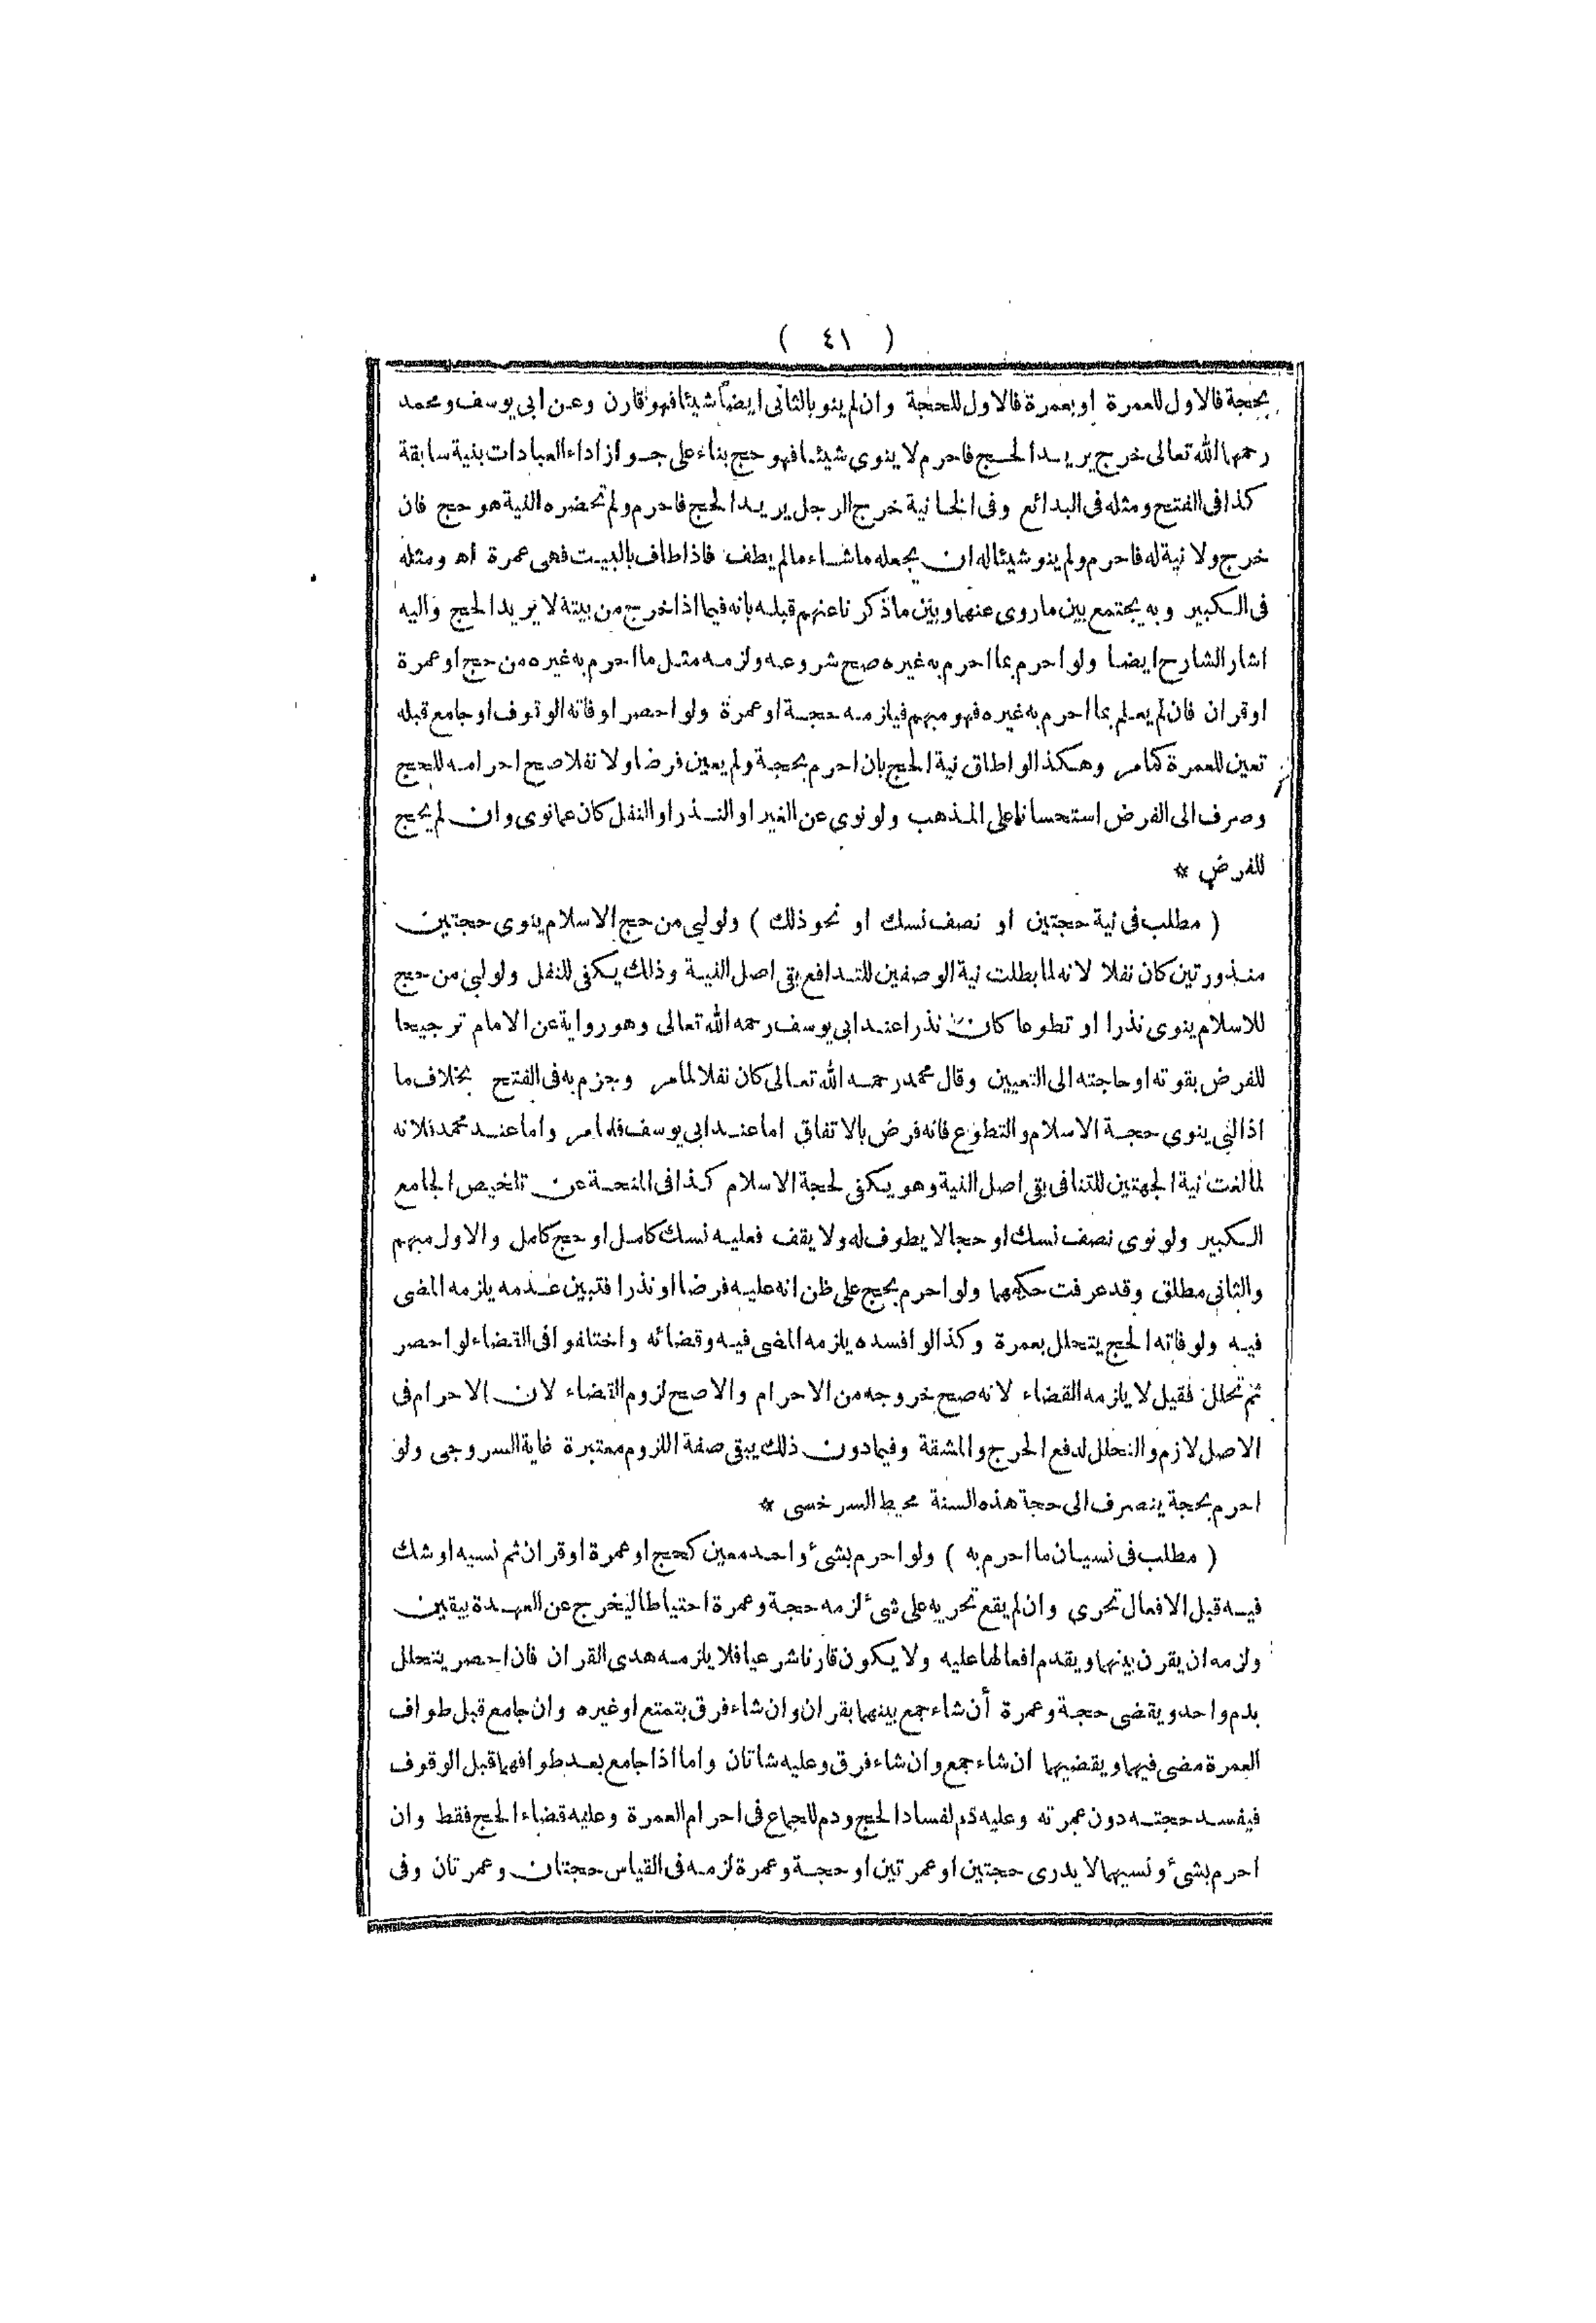 ( ٤١ )
بحجة فالاول للعمرة او بعمرة فالاول للحجة وان لم ينو بالثانى ايضا شيئا فهو قارن وعن ابى يوسف ومحمد
رحمهما الله تعالى خرج يريد الحج فاحرم لا ينوى شيئا فهو حج بناء على جواز اداء العبادات بنية سابقة
كذا فى الفتح ومثله فى البدائع وفى الخانية خرج الرجل يريد الحج فاحرم ولم تحضره النية هو حج فان
خرج ولا نية له فاحرم ولم ينو شيئا له ان يجعله ماشاء مالم يطف فاذا طاف بالبيت فهى عمرة اه ومثله
فى الكبير وبه يجتمع بين ماروى عنهما وبين ماذكرنا عنهم قبله بانه فيما اذا خرج من بيته لا يريد الحج واليه
اشار الشارح ايضا ولو احرم بما احرم به غيره صح شروعه ولزمه مثل ما احرم به غيره من حج او عمرة
او قران فان لم يعلم بما احرم به غيره فهو مبهم فيلزمه حجة او عمرة ولو احصر او فاته الوقوف او جامع قبله
تعين للعمرة كمامر وهكذا لو اطلق نية الحج بان احرم بحجة ولم يعين فرضا ولا نفلا صح احرامه للحج
وصرف الى الفرض استحسانا على المذهب ولو نوى عن الغير او النذر او النفل كان عمانوى وان لم يحج
للفرض *
( مطلب فى نية حجتين او نصف نسك او نحو ذلك ) ولو لبى من حج الاسلام ينوى حجتين
منذورتين كان نفلا لانه لما بطلت نية الوصفين للتدافع بقى اصل النية وذلك يكفى للنفل ولو لبى من حج
للاسلام ينوى نذرا او تطوعا كان نذرا عند ابى يوسف رحمه الله تعالى وهو رواية عن الامام ترجيحا
للفرض بقوته او حاجته الى التعيين وقال محمد رحمه الله تعالى كان نفلا لمامر وجزم به فى الفتح بخلاف ما
اذا لبى ينوى حجة الاسلام والتطوع فانه فرض بالاتفاق اما عند ابى يوسف فلمامر واما عند محمد فلانه
لما لغت نية الجهتين للتنافى بقى اصل النية وهو يكفى لحجة الاسلام كذا فى المنحة عن تلخيص الجامع
الكبير ولو نوى نصف نسك او حجا لا يطوف له ولا يقف فعليه نسك كامل او حج كامل والاول مبهم
والثانى مطلق وقد عرفت حكمهما ولو احرم بحج على ظن انه عليه فرضا او نذرا فتبين عدمه يلزمه المضى
فيه ولو فاته الحج يتحلل بعمرة وكذا لو افسده يلزمه المضى فيه وقضائه واختلفوا فى القضاء لو احصر
ثم تحلل فقيل لا يلزمه القضاء لانه صح خروجه من الاحرام والاصح لزوم القضاء لان الاحرام فى
الاصل لازم والتحلل لدفع الحرج والمشقة وفيما دون ذلك يبقى صفة اللزوم معتبرة غاية السروجى ولو
احرم بحجة ينصرف الى حجة هذه السنة محيط السرخسى *
( مطلب فى نسيان ما احرم به ) ولو احرم بشئ واحد معين كحج او عمرة او قران ثم نسيه او شك
فيه قبل الافعال تحرى وان لم يقع تحريه على شئ لزمه حجة وعمرة احتياطا ليخرج عن العهدة بيقين
ولزمه ان يقرن بينهما ويقدم افعالها عليه ولا يكون قارنا شرعيا فلا يلزمه هدى القران فان احصر يتحلل
بدم واحد ويقضى حجة وعمرة أن شاء جمع بينهما بقران وان شاء فرق بتمتع او غيره وان جامع قبل طواف
العمرة مضى فيهما ويقضيهما ان شاء جمع وان شاء فرق وعليه شاتان واما اذا جامع بعد طوافها قبل الوقوف
فيفسد حجته دون عمرته وعليه دم لفساد الحج ودم للجماع فى احرام العمرة وعليه قضاء الحج فقط وان
احرم بشئ ونسيهما لا يدرى حجتين او عمرتين او حجة وعمرة لزمه فى القياس حجتان وعمرتان وفى